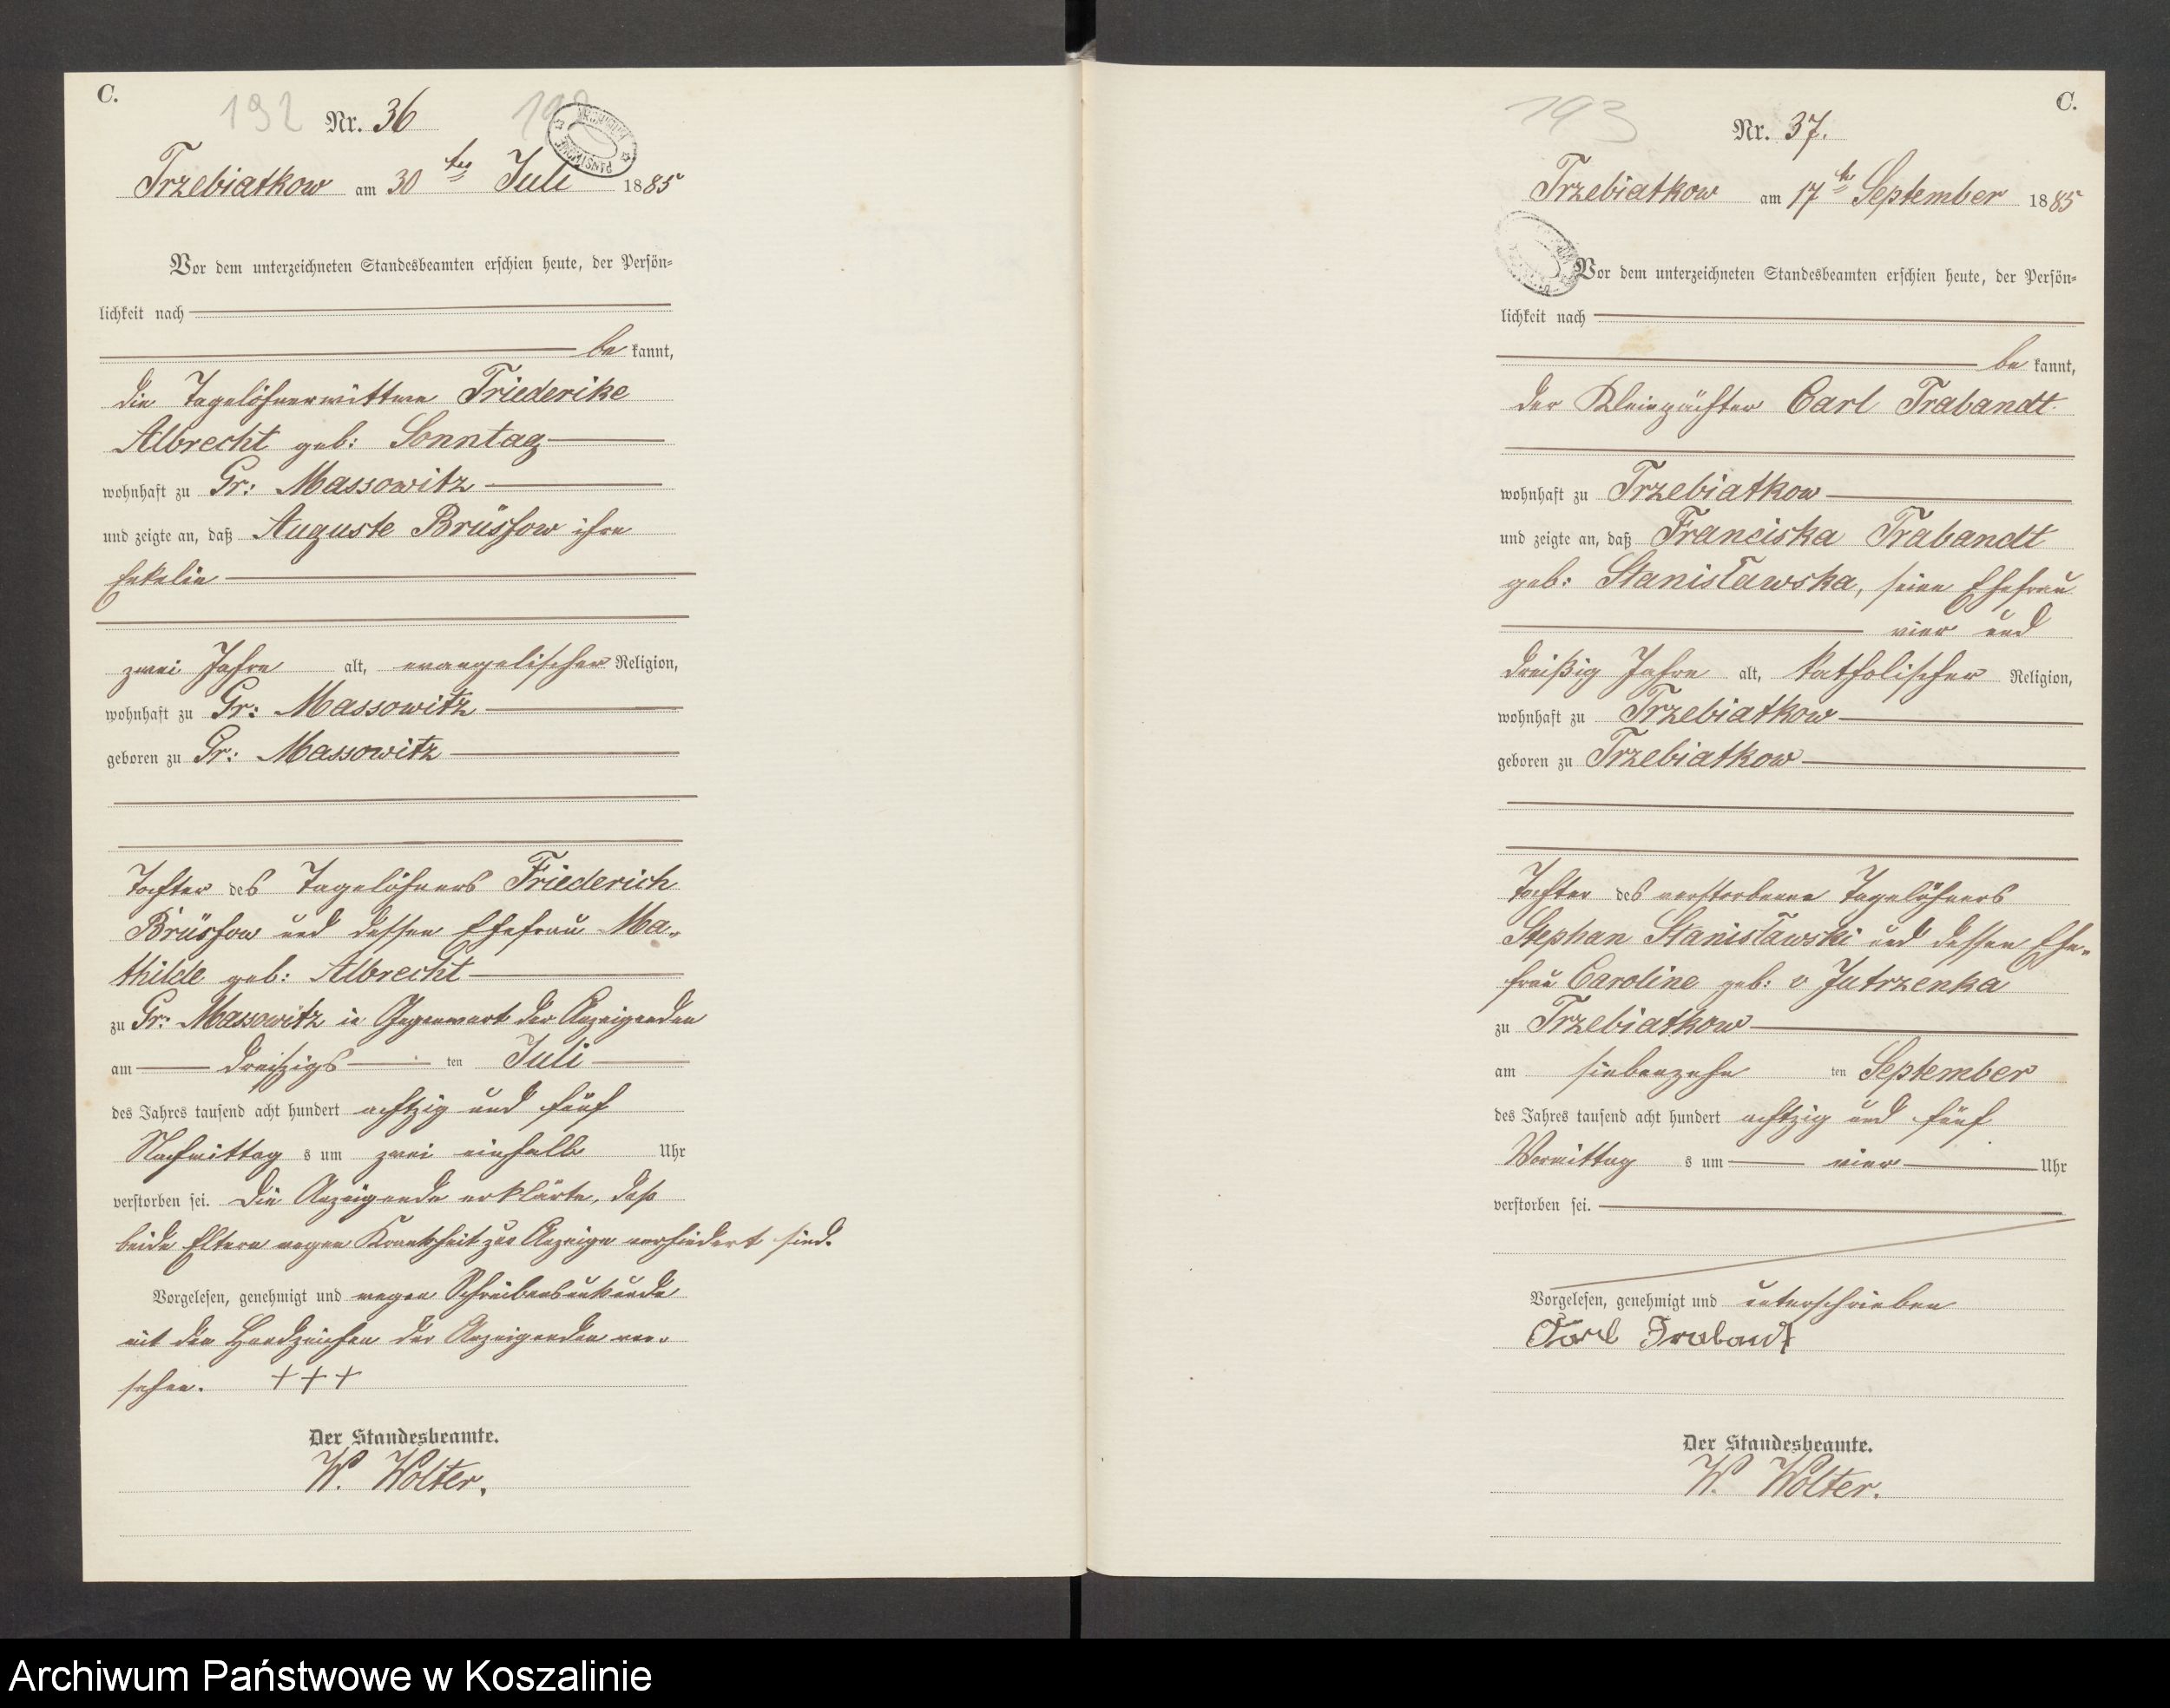 C.
192
Nr. 36
Trzebiatkow am 30ten Juli 1885
Vor dem unterzeichneten Standesbeamten erschien heute, der Persön-
lichkeit nach
bekannt,
die Tagelöhnerwittwe Friederike
Albrecht geb: Sonntag
wohnhaft zu Gr: Massowitz
und zeigte an, daß Auguste Brüssow ihre
Enkelin
zwei Jahre alt, evangelischer Religion,
wohnhaft zu Gr: Massowitz
geboren zu Gr: Massowitz
Tochter des Tagelöhners Friederich
Brüssow und dessen Ehefrau Ma-
thilde geb: Albrecht
zu Gr: Massowitz in Gegenwart der Anzeigenden
am dreißigs ten Juli
des Jahres tausend acht hundert achtzig und fünf
Nachmittag s um zwei einhalb Uhr
verstorben sei. Die Anzeigende erklärte, daß
beide Eltern wegen Krankheit zur Anzeige verhindert sind.
Vorgelesen, genehmigt und wegen Schreibensunkunde
mit den Handzeichen der Anzeigenden ver-
sehen. +++
Der Standesbeamte.
W. Wolter.
C.
193
Nr. 37.
Trzebiatkow am 17ten September 1885
Vor dem unterzeichneten Standesbeamten erschien heute, der Persön-
lichkeit nach
bekannt,
der Kleinpächter Carl Trabandt
wohnhaft zu Trzebiatkow
und zeigte an, daß Franciska Trabandt
geb: Stanisławska, seine Ehefrau
vier und
dreißig Jahre alt, katholischer Religion,
wohnhaft zu Trzebiatkow
geboren zu Trzebiatkow
Tochter des verstorbenen Tagelöhners
Stephan Stanisławski und dessen Ehe-
frau Caroline geb: v Jutrzenka
zu Trzebiatkow
am siebenzehn ten September
des Jahres tausend acht hundert achtzig und fünf
Vormittag s um vier Uhr
verstorben sei.
Vorgelesen, genehmigt und unterschrieben
Carl Trabant
Der Standesbeamte.
W. Wolter.
Archiwum Państwowe w Koszalinie